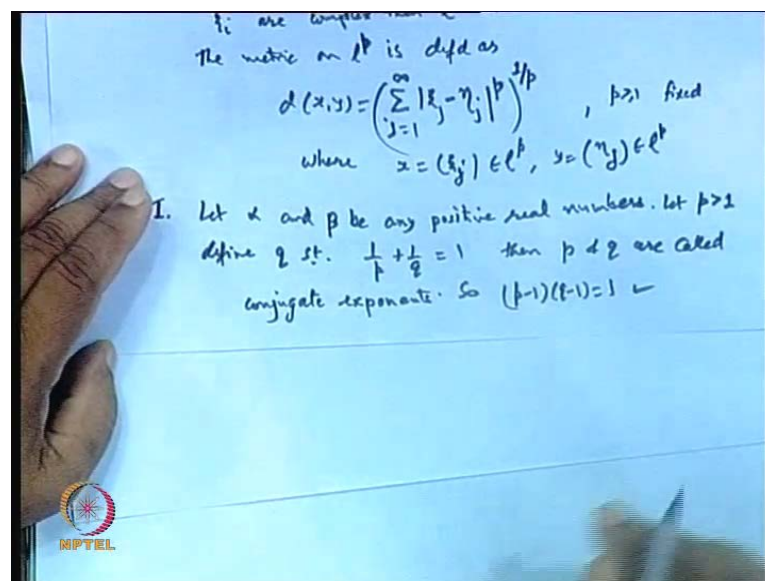 ξ_i are complex then
The metric on l^p is defd as
d(x,y) = (∑_{j=1}^{∞} |ξ_j - η_j|^p)^{1/p} , p≥1 fixed
where x = (ξ_j) ∈ l^p, y = (η_j) ∈ l^p
I. Let α and β be any positive real numbers. Let p>1
define q st. 1/p + 1/q = 1 then p & q are called
conjugate exponents. So (p-1)(q-1)=1 ✓
NPTEL